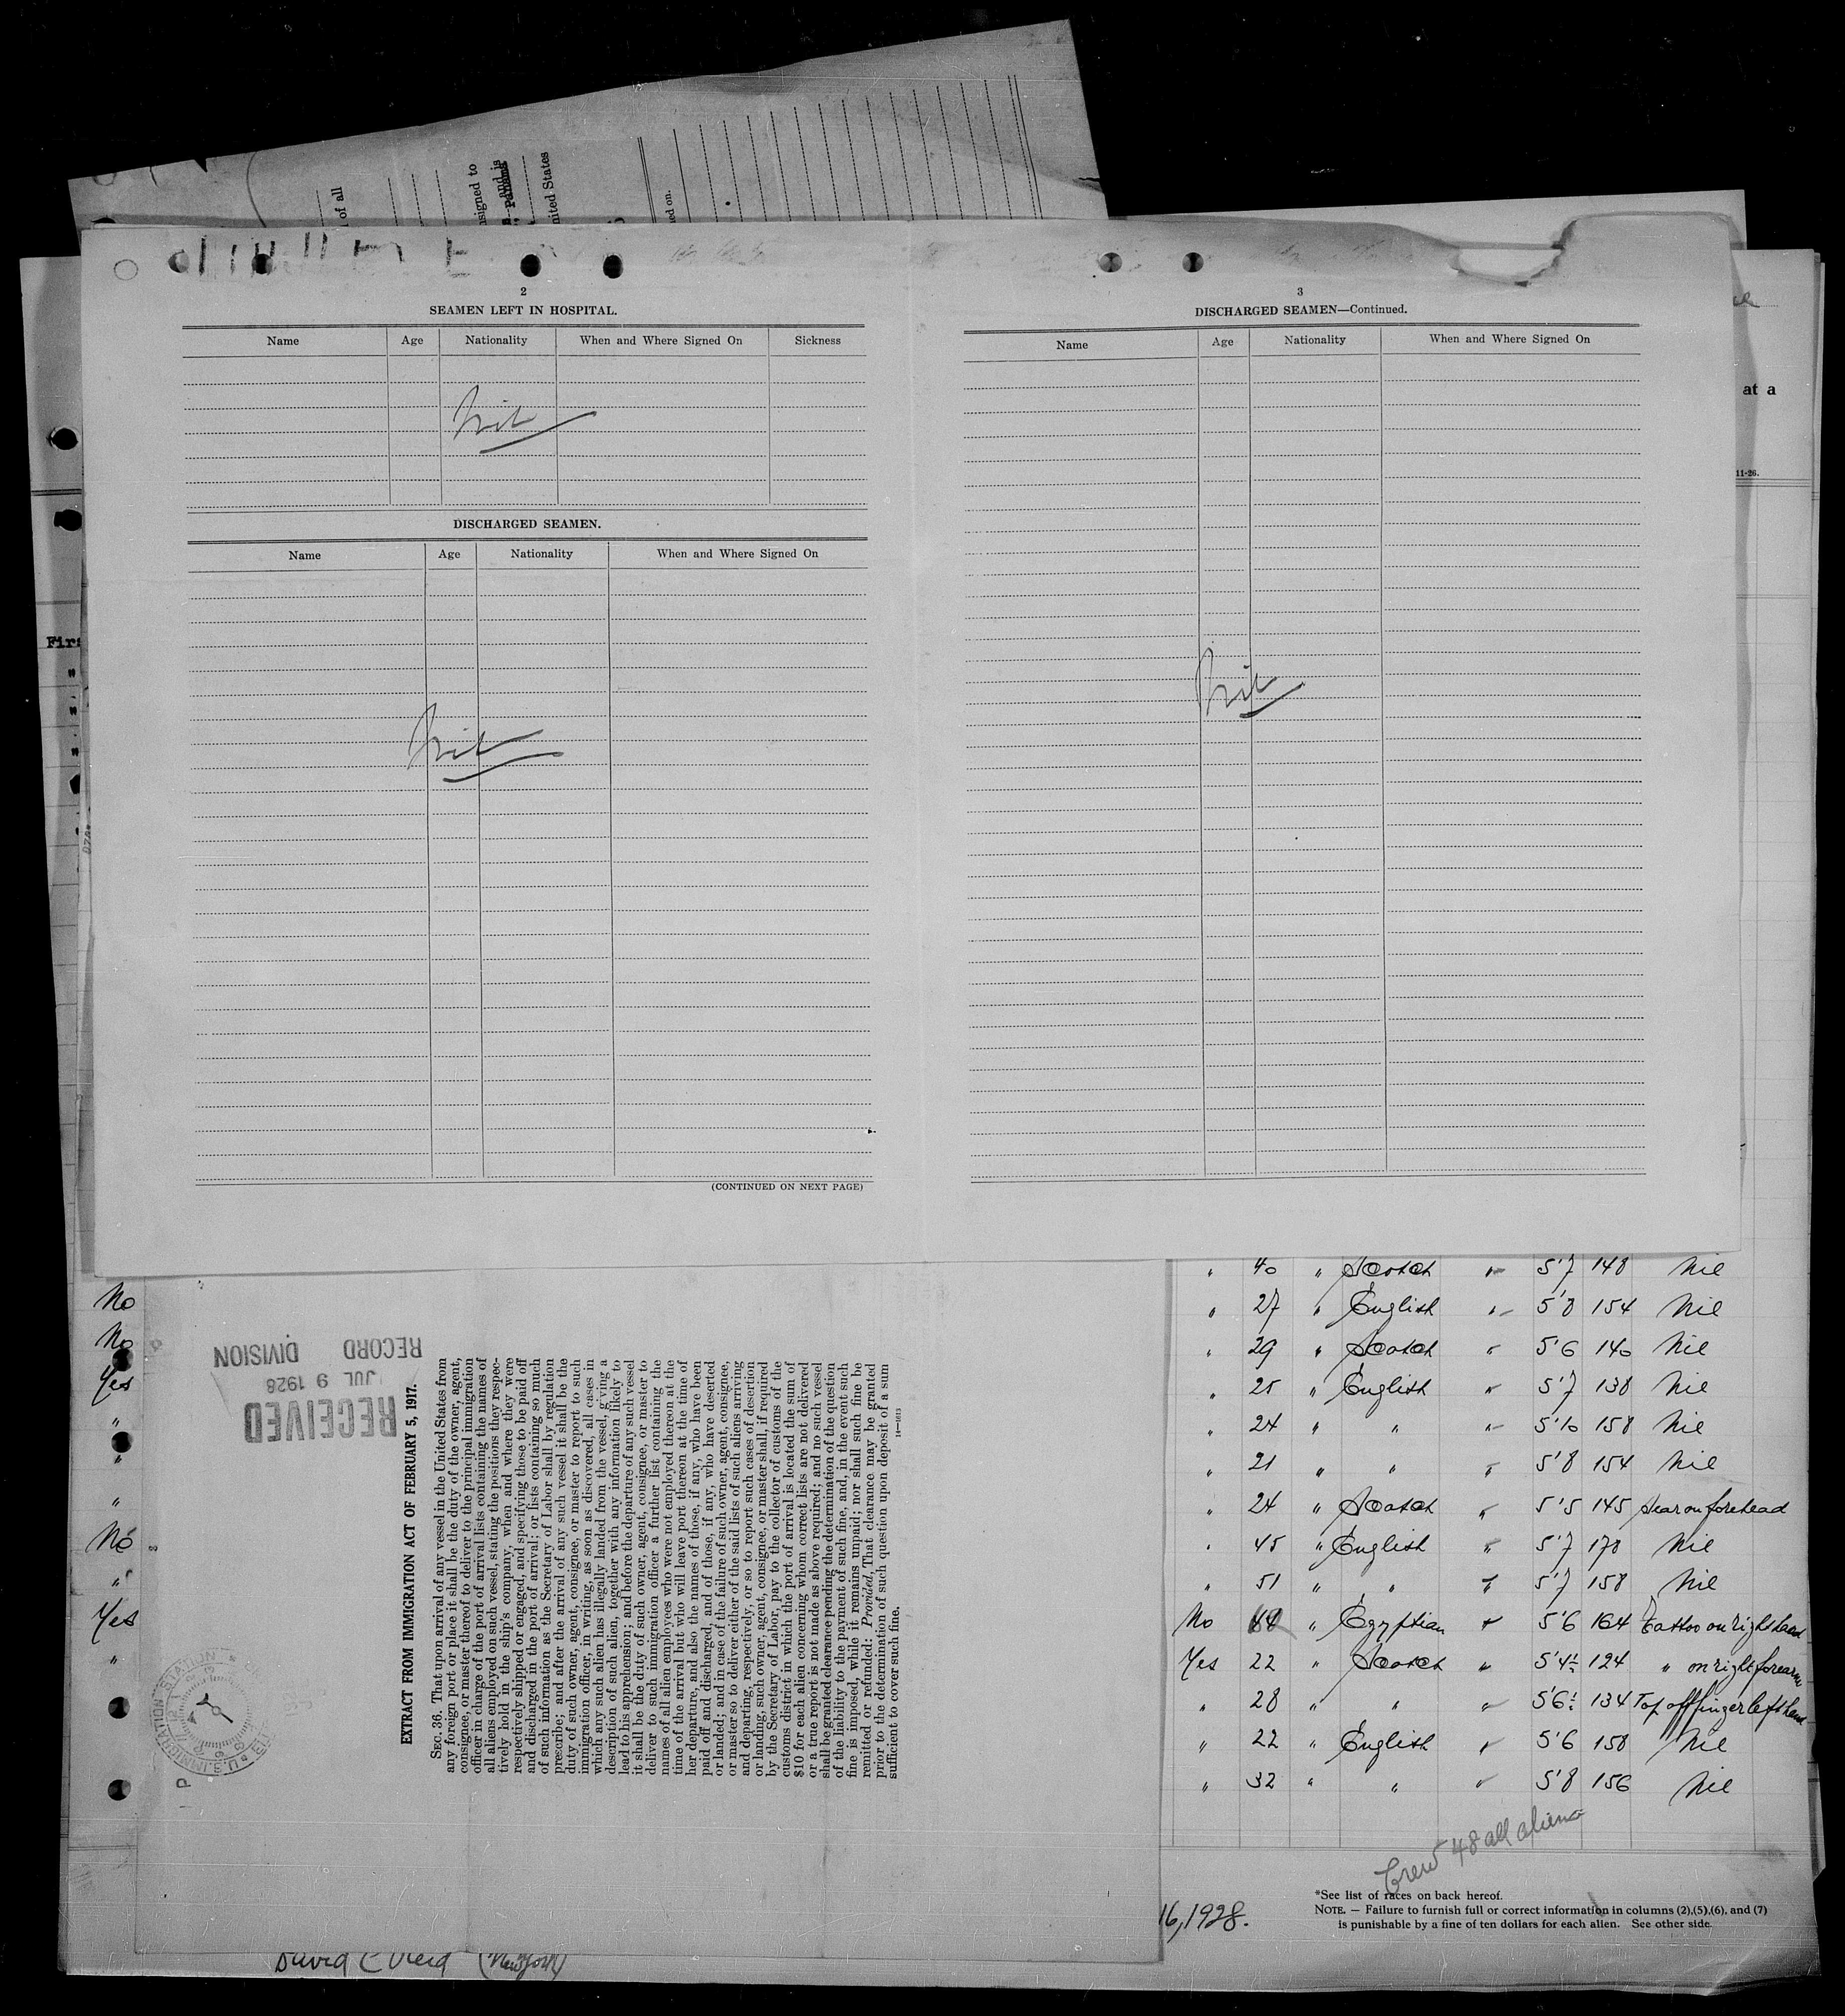 of all
signed to
and is
Panama
nited States
ed on.
2
SEAMEN LEFT IN HOSPITAL.
Name Age Nationality When and Where Signed On Sickness
Nil
DISCHARGED SEAMEN.
Name Age Nationality When and Where Signed On
Nil
(CONTINUED ON NEXT PAGE)
3
DISCHARGED SEAMEN—Continued.
Name Age Nationality When and Where Signed On
Nil
at a
11-26.
Firs
"
"
"
No
No
Yes
"
"
"
No
"
Yes
"
RECEIVED
JUL 9 1928
RECORD DIVISION
U.S. IMMIGRATION STATION
P
EXTRACT FROM IMMIGRATION ACT OF FEBRUARY 5, 1917.
SEC. 36. That upon arrival of any vessel in the United States from
any foreign port or place it shall be the duty of the owner, agent,
consignee, or master thereof to deliver to the principal immigration
officer in charge of the port of arrival lists containing the names of
all aliens employed on such vessel, stating the positions they respec-
tively hold in the ship's company, when and where they were
respectively shipped or engaged, and specifying those to be paid off
and discharged in the port of arrival; or lists containing so much
of such information as the Secretary of Labor shall by regulation
prescribe; and after the arrival of any such vessel it shall be the
duty of such owner, agent, consignee, or master to report to such
immigration officer, in writing, as soon as discovered, all cases in
which any such alien has illegally landed from the vessel, giving a
description of such alien, together with any information likely to
lead to his apprehension; and before the departure of any such vessel
it shall be the duty of such owner, agent, consignee, or master to
deliver to such immigration officer a further list containing the
names of all alien employees who were not employed thereon at the
time of the arrival but who will leave port thereon at the time of
her departure, and also the names of those, if any, who have been
paid off and discharged, and of those, if any, who have deserted
or landed; and in case of the failure of such owner, agent, consignee,
or master so to deliver either of the said lists of such aliens arriving
and departing, respectively, or so to report such cases of desertion
or landing, such owner, agent, consignee, or master shall, if required
by the Secretary of Labor, pay to the collector of customs of the
customs district in which the port of arrival is located the sum of
$10 for each alien concerning whom correct lists are not delivered
or a true report is not made as above required; and no such vessel
shall be granted clearance pending the determination of the question
of the liability to the payment of such fine, and, in the event such
fine is imposed, while it remains unpaid; nor shall such fine be
remitted or refunded: Provided, That clearance may be granted
prior to the determination of such question upon deposit of a sum
sufficient to cover such fine.
14—1613
" 40 " Scotch " 5'7 148 Nil
" 27 " English " 5'8 154 Nil
" 29 " Scotch " 5'6 140 Nil
" 25 " English " 5'7 138 Nil
" 24 " " " 5'10 158 Nil
" 21 " " " 5'8 154 Nil
" 24 " Scotch " 5'5 145 Scar on forehead
" 45 " English " 5'7 178 Nil
" 51 " " " 5'7 158 Nil
No " Egyptian " 5'6 164 Tattoo on right hand
Yes 22 " Scotch " 5'4½ 124 " on right forearm
" 28 " " " 5'6½ 134 Top off finger left hand
" 22 " English " 5'6 150 Nil
" 32 " " " 5'8 156 Nil
Crew 48 all aliens
*See list of races on back hereof.
NOTE. — Failure to furnish full or correct information in columns (2),(5),(6), and (7)
is punishable by a fine of ten dollars for each alien. See other side.
16, 1928.
David C Reid (New York)